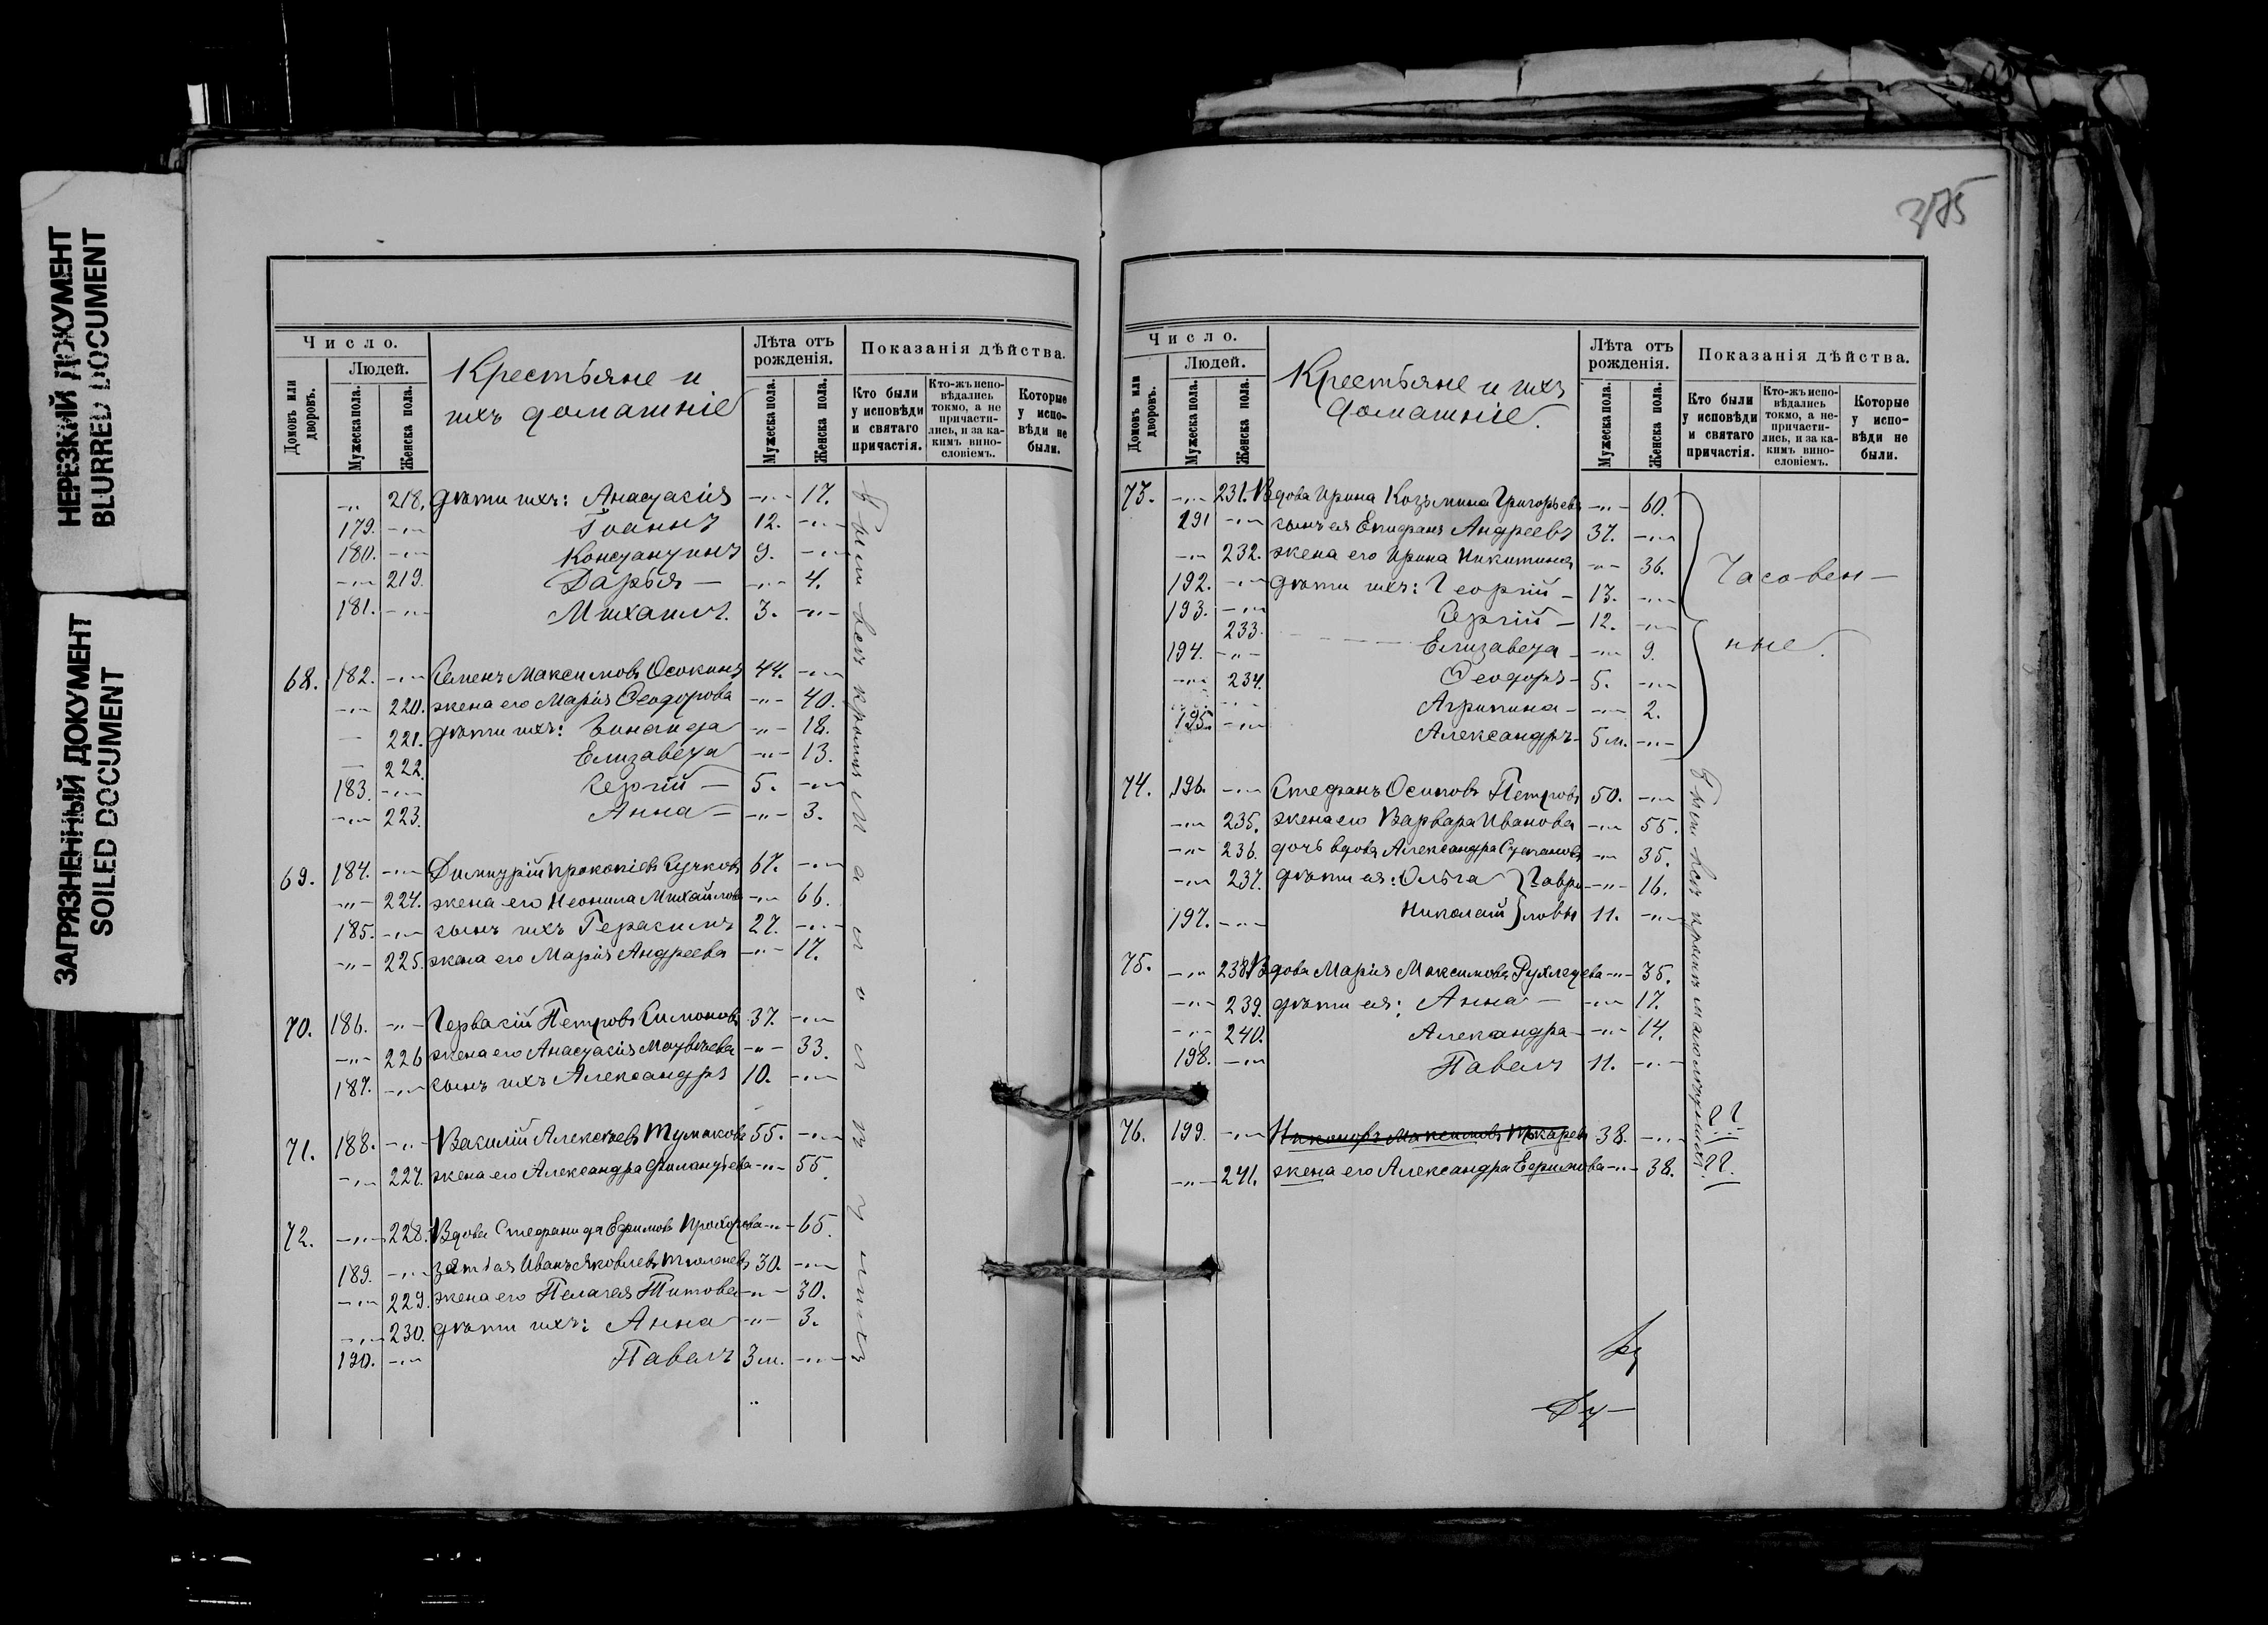 НЕРЕЗКИЙ ДОКУМЕНТ
BLURRED DOCUMENT
ЗАГРЯЗНЕННЫЙ ДОКУМЕНТ
SOILED DOCUMENT
Число.
Людей.
Домовъ или дворовъ.
Мужеска пола.
Женска пола.
Крестьяне и
ихъ домашніе
Лѣта отъ рожденія.
Мужеска пола.
Женска пола.
Показанія дѣйства.
Кто были у исповѣди и святаго причастія.
Кто-жъ испо-вѣдались токмо, а не причасти-лись, и за ка-кимъ вино-словіемъ.
Которые у испо-вѣди не были.
-"- 218. дѣти ихъ: Анастасія -"- 17.
179. -"- Іоаннъ 12. -"-
180. -"- Константинъ 9. -"-
-"- 219. Дарья -"- 4.
181. -"- Михаилъ. 3. -"-
68. 182. -"- Семенъ Максимовъ Осокинъ 44. -"-
-"- 220. жена его Марія Ѳеодорова -"- 40.
221. дѣти ихъ: Зинаида -"- 18.
222. Елизавета -"- 13.
183. -"- Сергій 5. -"-
-"- 223. Анна -"- 3.
69. 184. -"- Димитрій Прокопіевъ Сучковъ 67. -"-
-"- 224. жена его Неонила Михайлова -"- 66.
185. -"- сынъ ихъ Герасимъ 27. -"-
-"- 225. жена его Марія Андреева -"- 17.
70. 186. -"- Гервасій Петровъ Симоновъ 37. -"-
-"- 226 жена его Анастасія Матвѣева -"- 33.
187. -"- сынъ ихъ Александръ 10. -"-
71. 188. -"- Василій Алексѣевъ Тумаковъ 55. -"-
-"- 227. жена его Александра -"- 55.
72. -"- 228. Вдова Стефанида Ефимова Прохорова -"- 65.
189. -"- зять ея Иванъ Яковлевъ Тюленевъ 30. -"-
-"- 229. жена его Пелагея Титова -"- 30.
-"- 230. дѣти ихъ: Анна -"- 3.
190. -"- Павелъ 3 м. -"-
Были всѣ кромѣ Малолѣтнихъ
Число.
Людей.
Домовъ или дворовъ.
Мужеска пола.
Женска пола.
Крестьяне и ихъ
домашніе.
Лѣта отъ рожденія.
Мужеска пола.
Женска пола.
Показанія дѣйства.
Кто были у исповѣди и святаго причастія.
Кто-жъ испо-вѣдались токмо, а не-причасти-лись, и за ка-кимъ вино-словіемъ.
Которые у испо-вѣди не были.
73. -"- 231. Вдова Ирина Козьмина Григорьева -"- 60.
191 -"- сынъ ея Епифанъ Андреевъ 37. -"-
-"- 232. жена его Ирина Никитина -"- 36.
192. -"- дѣти ихъ: Георгій 13. -"-
193. -"- Сергій 12. -"-
233. Елизавета -"- 9.
194. -"- Ѳеодоръ 5. -"-
-"- 234. Агрипина -"- 2.
195. -"- Александръ 5 м. -"-
Часовен-
ные.
74. 196. -"- Стефанъ Осиповъ Петровъ 50. -"-
-"- 235. жена его Варвара Иванова -"- 55.
-"- 236. дочь вдова Александра Степанова -"- 35.
-"- 237. дѣти ея: Ольга } Гаври- -"- 16.
197. -"- Николай } ловы 11. -"-
75. -"- 238. Вдова Марія Максимова -"- 35.
-"- 239. дѣти ея: Анна -"- 17.
-"- 240. Александра -"- 14.
198. -"- Павелъ 11. -"-
Были всѣ кромѣ малолѣтнихъ.
76. 199. -"- Никоноръ Максимовъ Токаревъ 38. -"- ??
-"- 241. жена его Александра Ефимова -"- 38. ??.